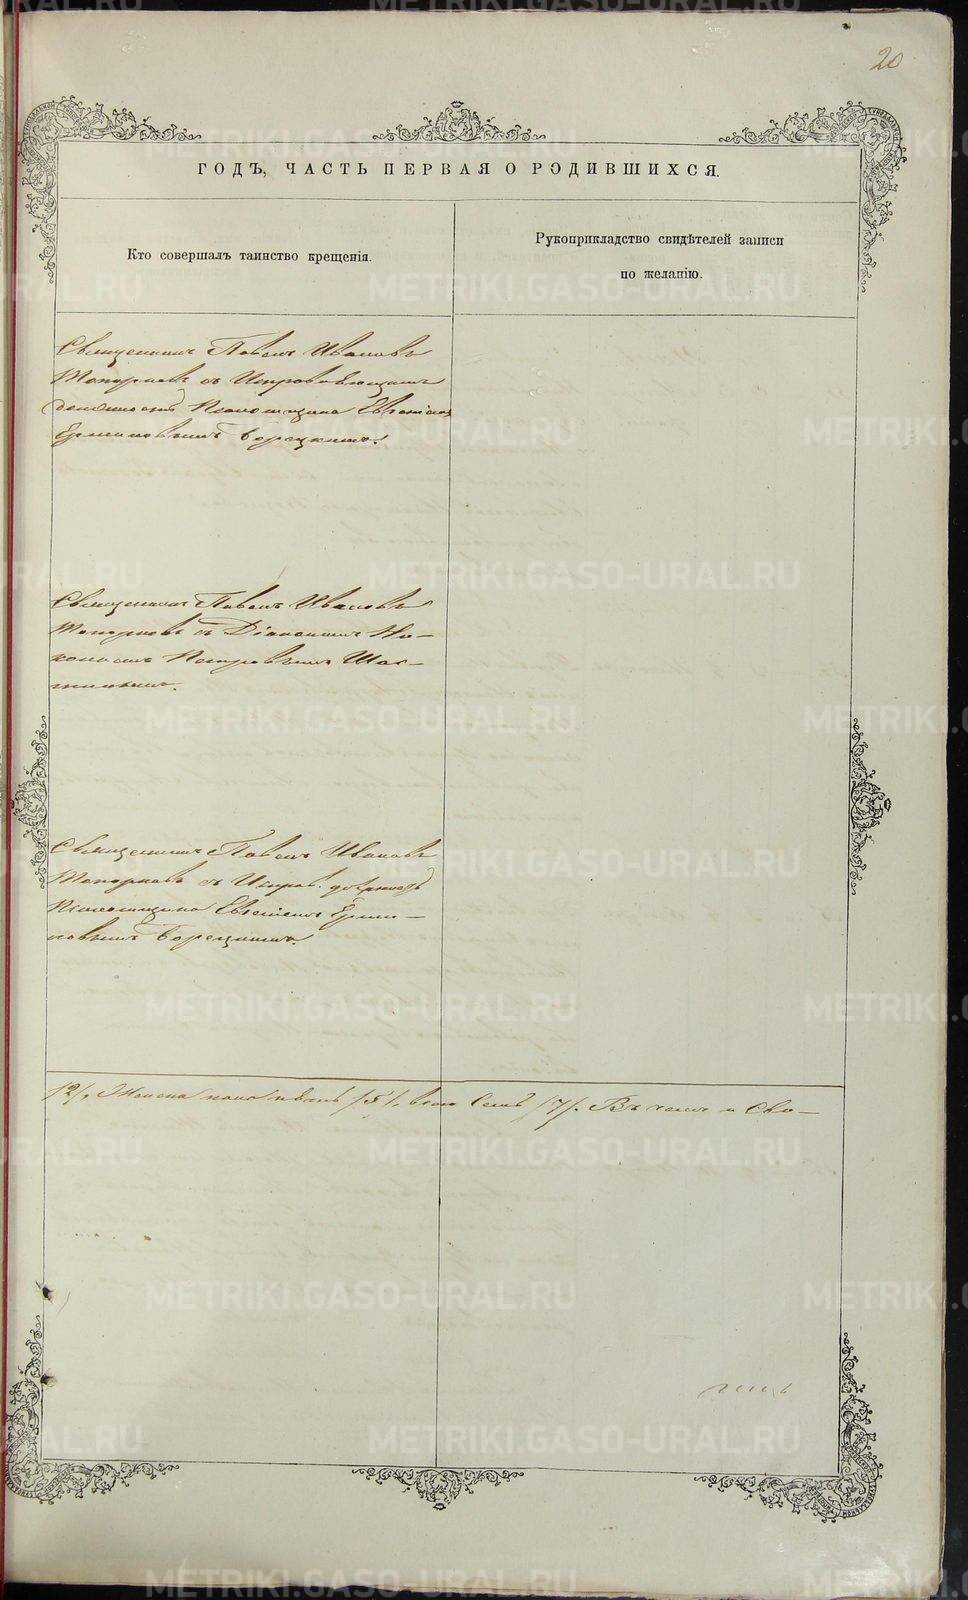 20
ГОДЪ, ЧАСТЬ ПЕРВАЯ О РОДИВШИХСЯ.
Кто совершалъ таинство крещенія.
Рукоприкладство свидѣтелей записи
по желанію.
Священникъ Павелъ Ивановъ
Топорковъ съ Исправляющимъ
должность Псаломщика Евгеніемъ
Ермиловымъ Борецкимъ.
Священникъ Павелъ Ивановъ
Топорковъ съ Діакономъ Ни-
колаемъ Петровымъ
Священникъ Павелъ Ивановъ
Топорковъ съ Исправ. должность
Псаломщика Евгеніемъ Ерми-
ловымъ Борецкимъ.
/2/, Женска пола пять /5/, всего Семь /7/. Въ чемъ и Сви-
METRIKI.GASO-URAL.RU